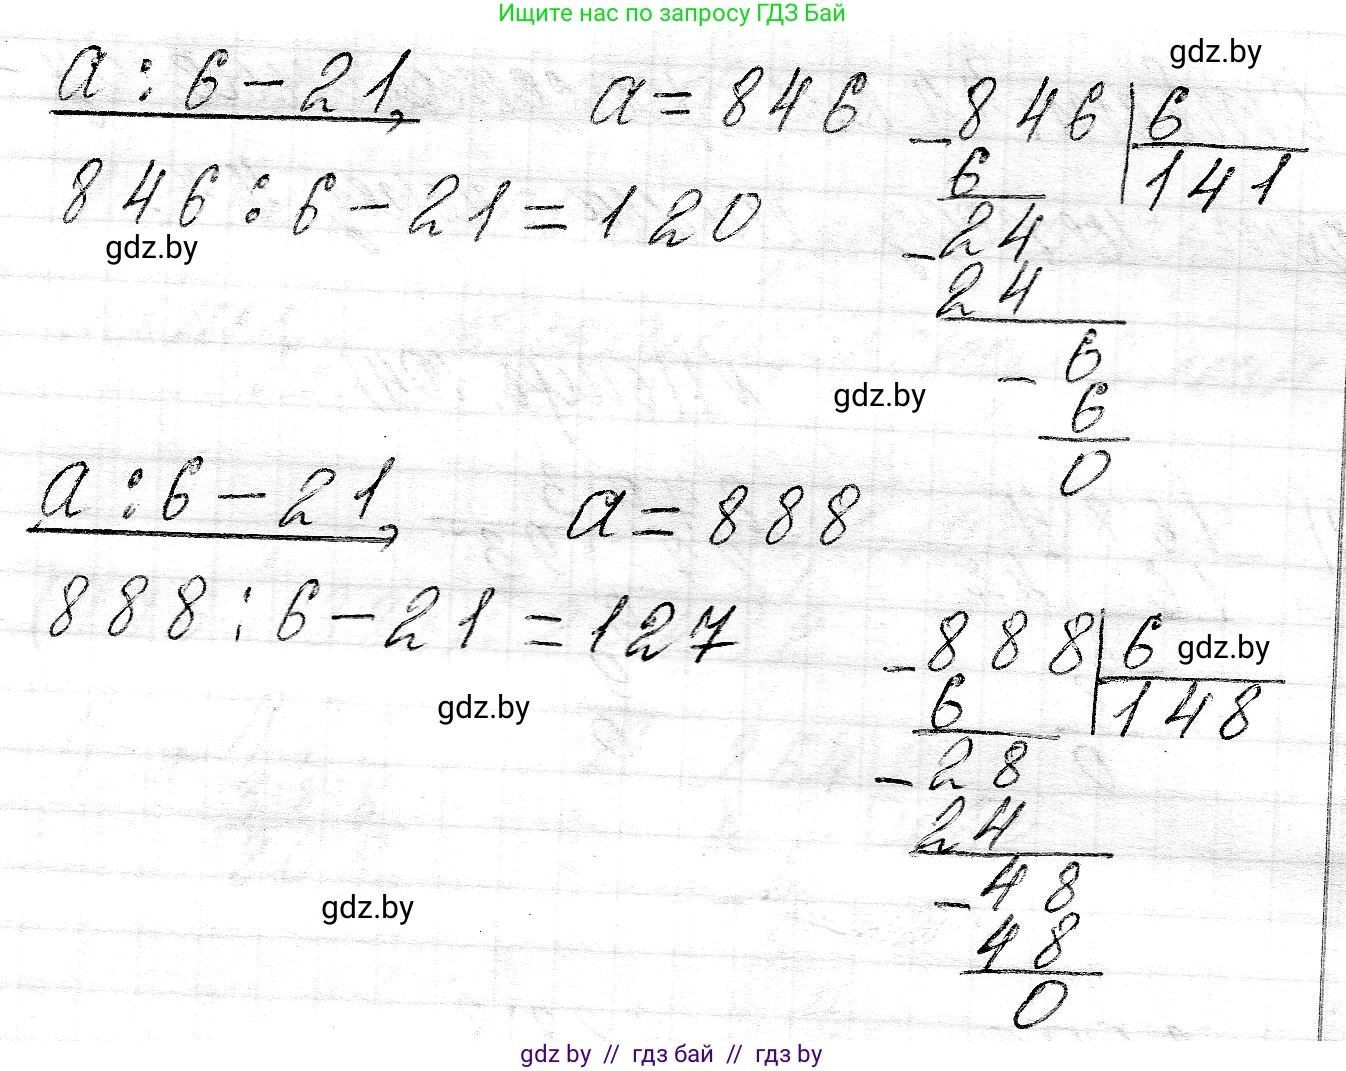 Ищите нас по запросу ГДЗ Бай
gdz.by
a : 6 - 21, a = 846
846 : 6 - 21 = 120
gdz.by
- 846 | 6
6 141
- 24
24
- 6
6
0
gdz.by
a : 6 - 21, a = 888
888 : 6 - 21 = 127
gdz.by
- 888 | 6
gdz.by
6 148
- 28
24
- 48
48
0
gdz.by
gdz by // гдз бай // гдз by